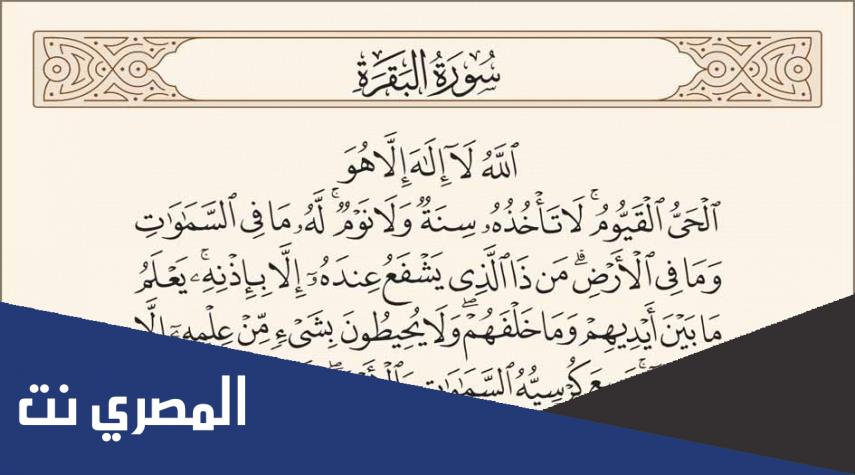 سُورَةُ البَقَرَةِ
ٱللَّهُ لَآ إِلَٰهَ إِلَّا هُوَ
ٱلْحَىُّ ٱلْقَيُّومُ ۚ لَا تَأْخُذُهُۥ سِنَةٌ وَلَا نَوْمٌ ۚ لَّهُۥ مَا فِى ٱلسَّمَٰوَٰتِ
وَمَا فِى ٱلْأَرْضِ ۗ مَن ذَا ٱلَّذِى يَشْفَعُ عِندَهُۥٓ إِلَّا بِإِذْنِهِۦ ۚ يَعْلَمُ
مَا بَيْنَ أَيْدِيهِمْ وَمَا خَلْفَهُمْ ۖ وَلَا يُحِيطُونَ بِشَىْءٍ مِّنْ عِلْمِهِۦٓ إِلَّا
كُرْسِيُّهُ ٱلسَّمَٰوَٰتِ
المصري نت